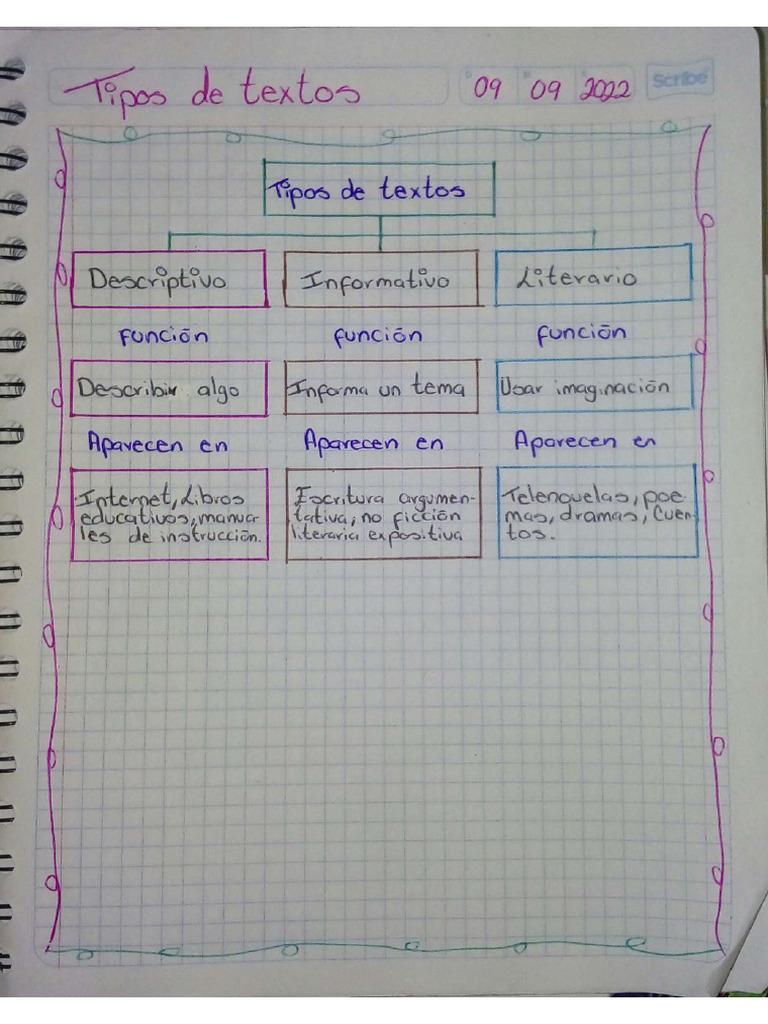 Tipos de textos
09 09 2022
Scribe
Tipos de textos
Descriptivo
Informativo
Literario
función
función
función
Describir algo
Informa un tema
Usar imaginación
Aparecen en
Aparecen en
Aparecen en
Internet, Libros
educativos, manua-
les de instrucción.
Escritura argumen-
tativa, no ficción
literaria expositiva
Telenovelas, poe
mas, dramas, Cuen
tos.